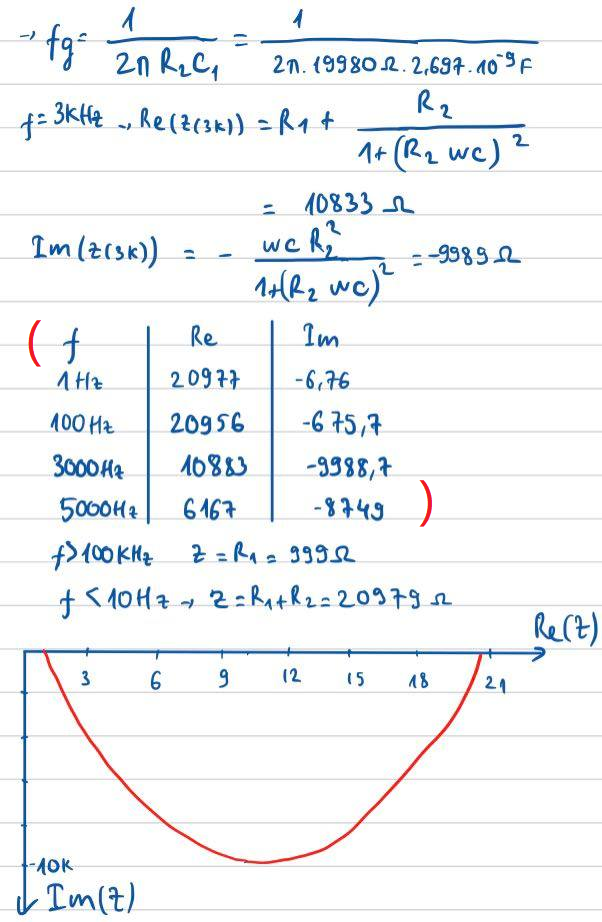 → fg = 1 / (2π R₂C₁) = 1 / (2π · 19980Ω · 2,697 · 10⁻⁹F)
f = 3kHz → Re(Z(3k)) = R₁ + R₂ / (1+(R₂ wc)²)
= 10833 Ω
Im(Z(3k)) = - wc R₂² / (1+(R₂ wc)²) = -9989 Ω
( f | Re | Im
1Hz | 20977 | -6,76
100Hz | 20956 | -675,7
3000Hz | 10883 | -9988,7
5000Hz | 6167 | -8749 )
f>100kHz Z = R₁ = 999Ω
f < 10Hz → Z = R₁+R₂ = 20979 Ω
Re(Z)
3 6 9 12 15 18 21
-10k
Im(Z)